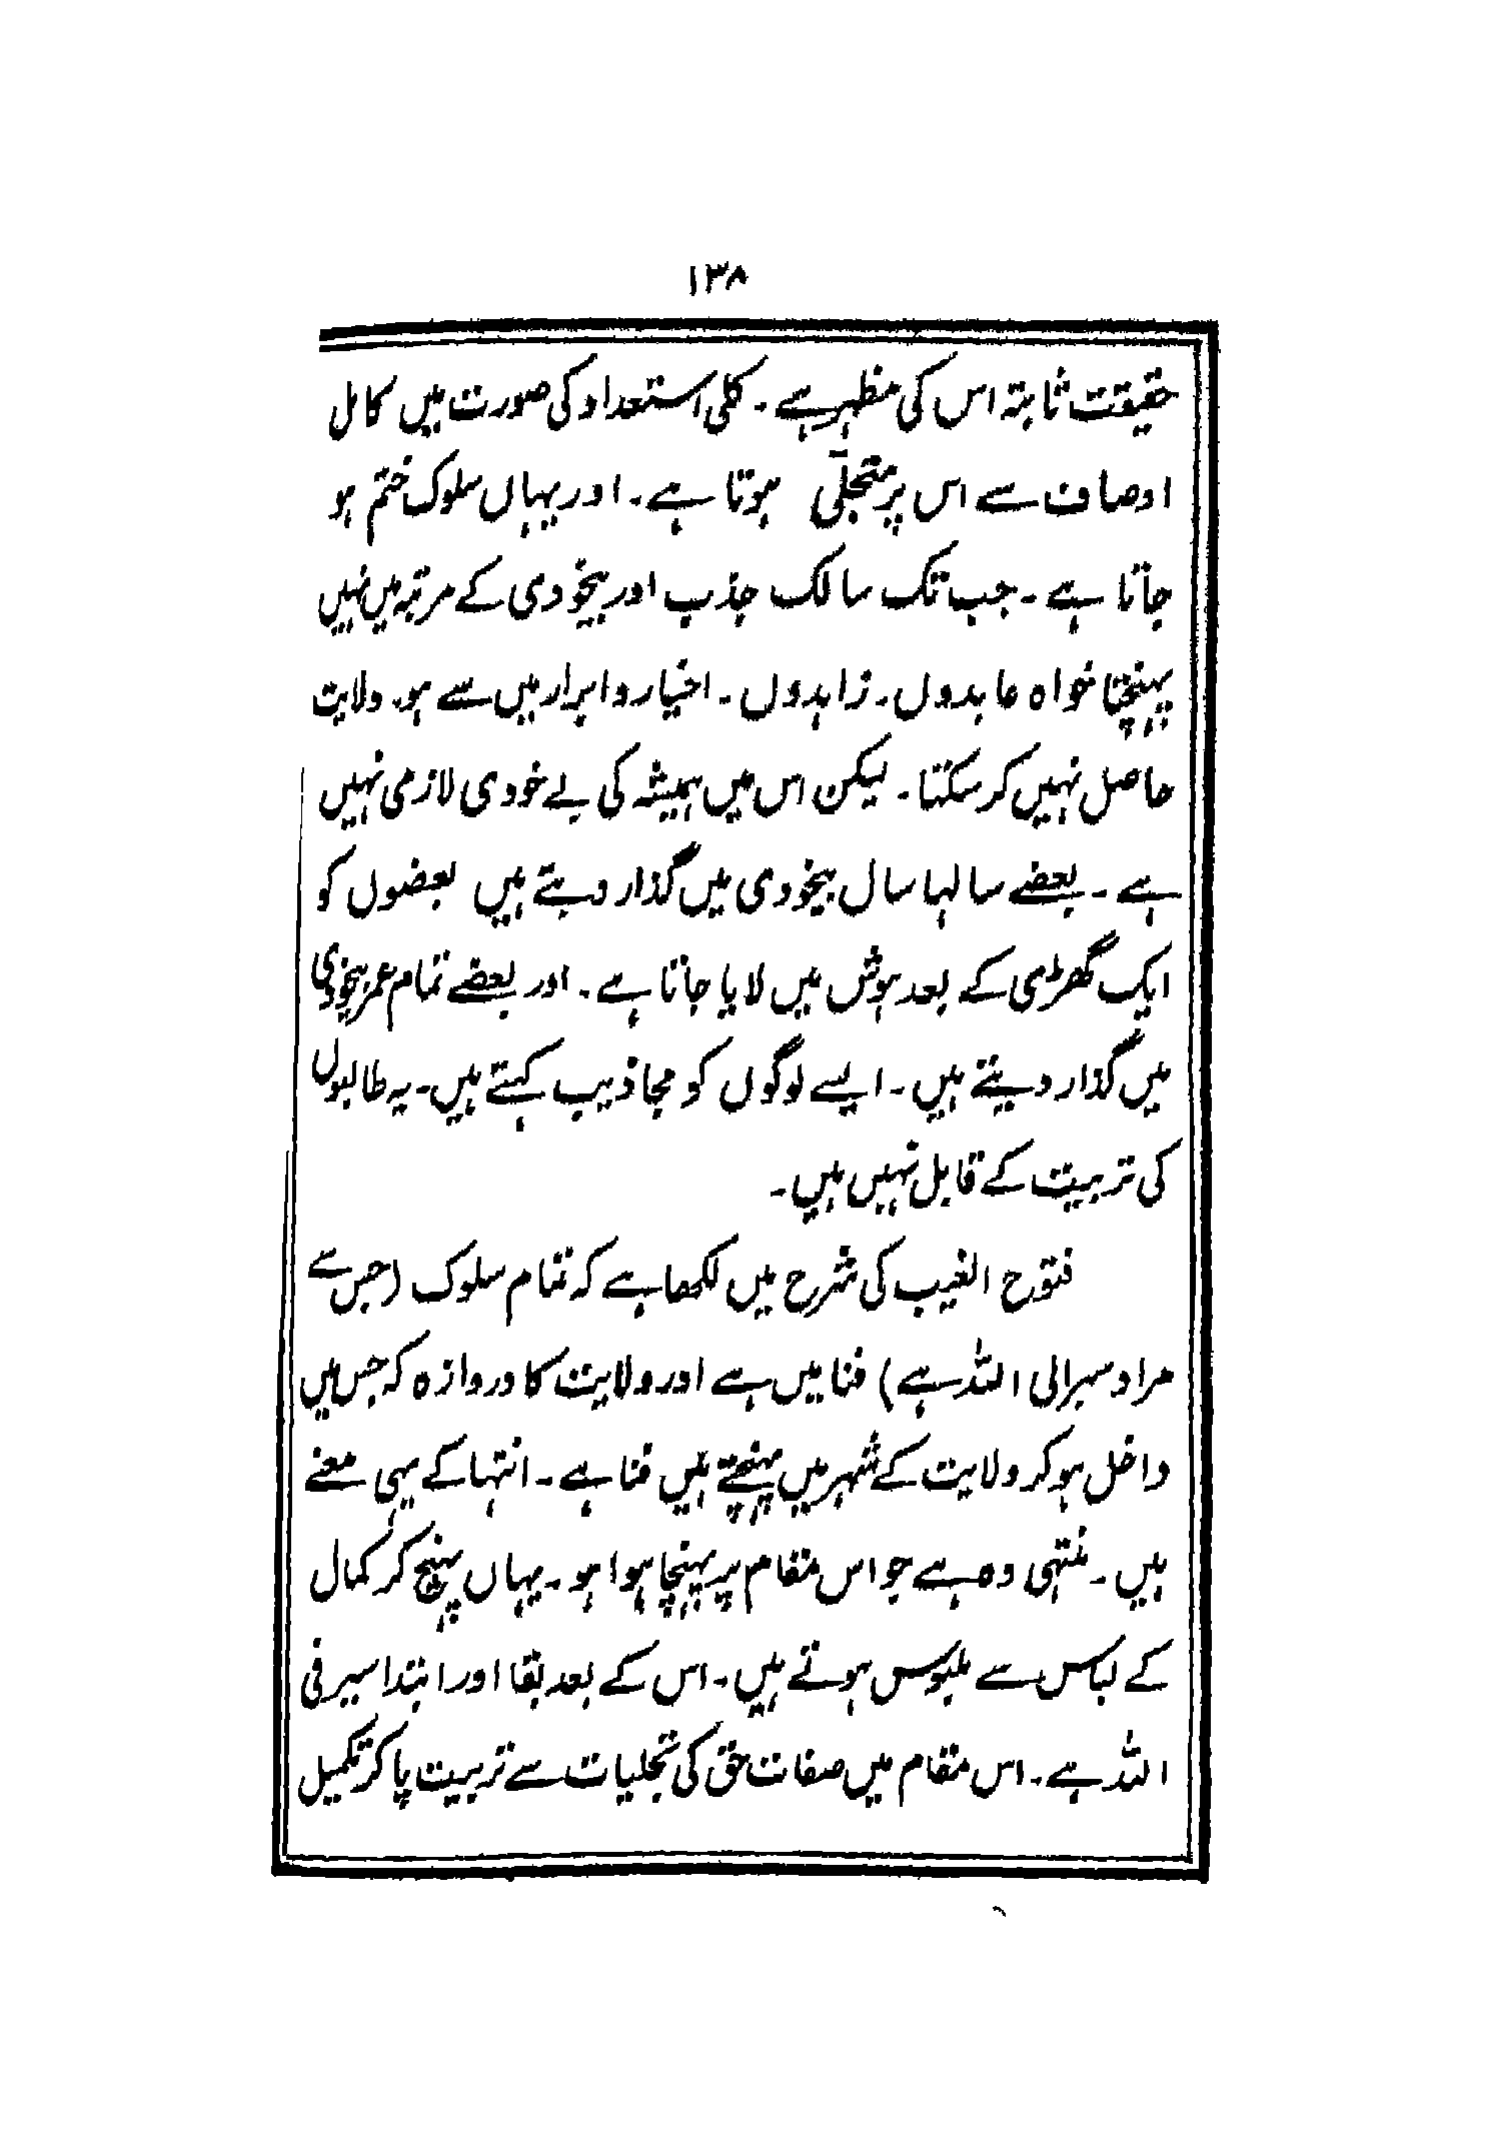 ۱۳۸
حقیقت ثابتہ اس کی مظہر ہے ۔ کلی استعداد کی صورت میں کامل
اوصاف سے اس پر متجلّی ہوتا ہے ۔ اور یہاں سلوک ختم ہو
جاتا ہے ۔ جب تک سالک جذب اور بیخودی کے مرتبہ میں نہیں
پہنچتا خواہ عابدوں ۔ زاہدوں ۔ اخیار و ابرار میں سے ہو۔ ولایت
حاصل نہیں کر سکتا ۔ لیکن اس میں ہمیشہ کی بے خودی لازمی نہیں
ہے ۔ بعضے سالہا سال بیخودی میں گذار دیتے ہیں بعضوں کو
ایک گھڑی کے بعد ہوش میں لایا جاتا ہے ۔ اور بعضے تمام عمر بیخودی
میں گذار دیتے ہیں ۔ ایسے لوگوں کو مجاذیب کہتے ہیں ۔ یہ طالبوں
کی تربیت کے قابل نہیں ہیں ۔
فتوح الغیب کی شرح میں لکھا ہے کہ تمام سلوک (جس سے
مراد سیر الی اللہ ہے) فنا میں ہے اور ولایت کا دروازہ کہ جس میں
داخل ہو کر ولایت کے شہر میں پہنچتے ہیں فنا ہے ۔ انتہا کے یہی معنے
ہیں ۔ منتہی وہ ہے جو اس مقام پر پہنچا ہوا ہو ۔ یہاں پہنچ کر کمال
کے لباس سے ملبوس ہوتے ہیں ۔ اس کے بعد بقا اور ابتدا سیر فی
اللہ ہے ۔ اس مقام میں صفات حق کی تجلیات سے تربیت پا کر تکمیل